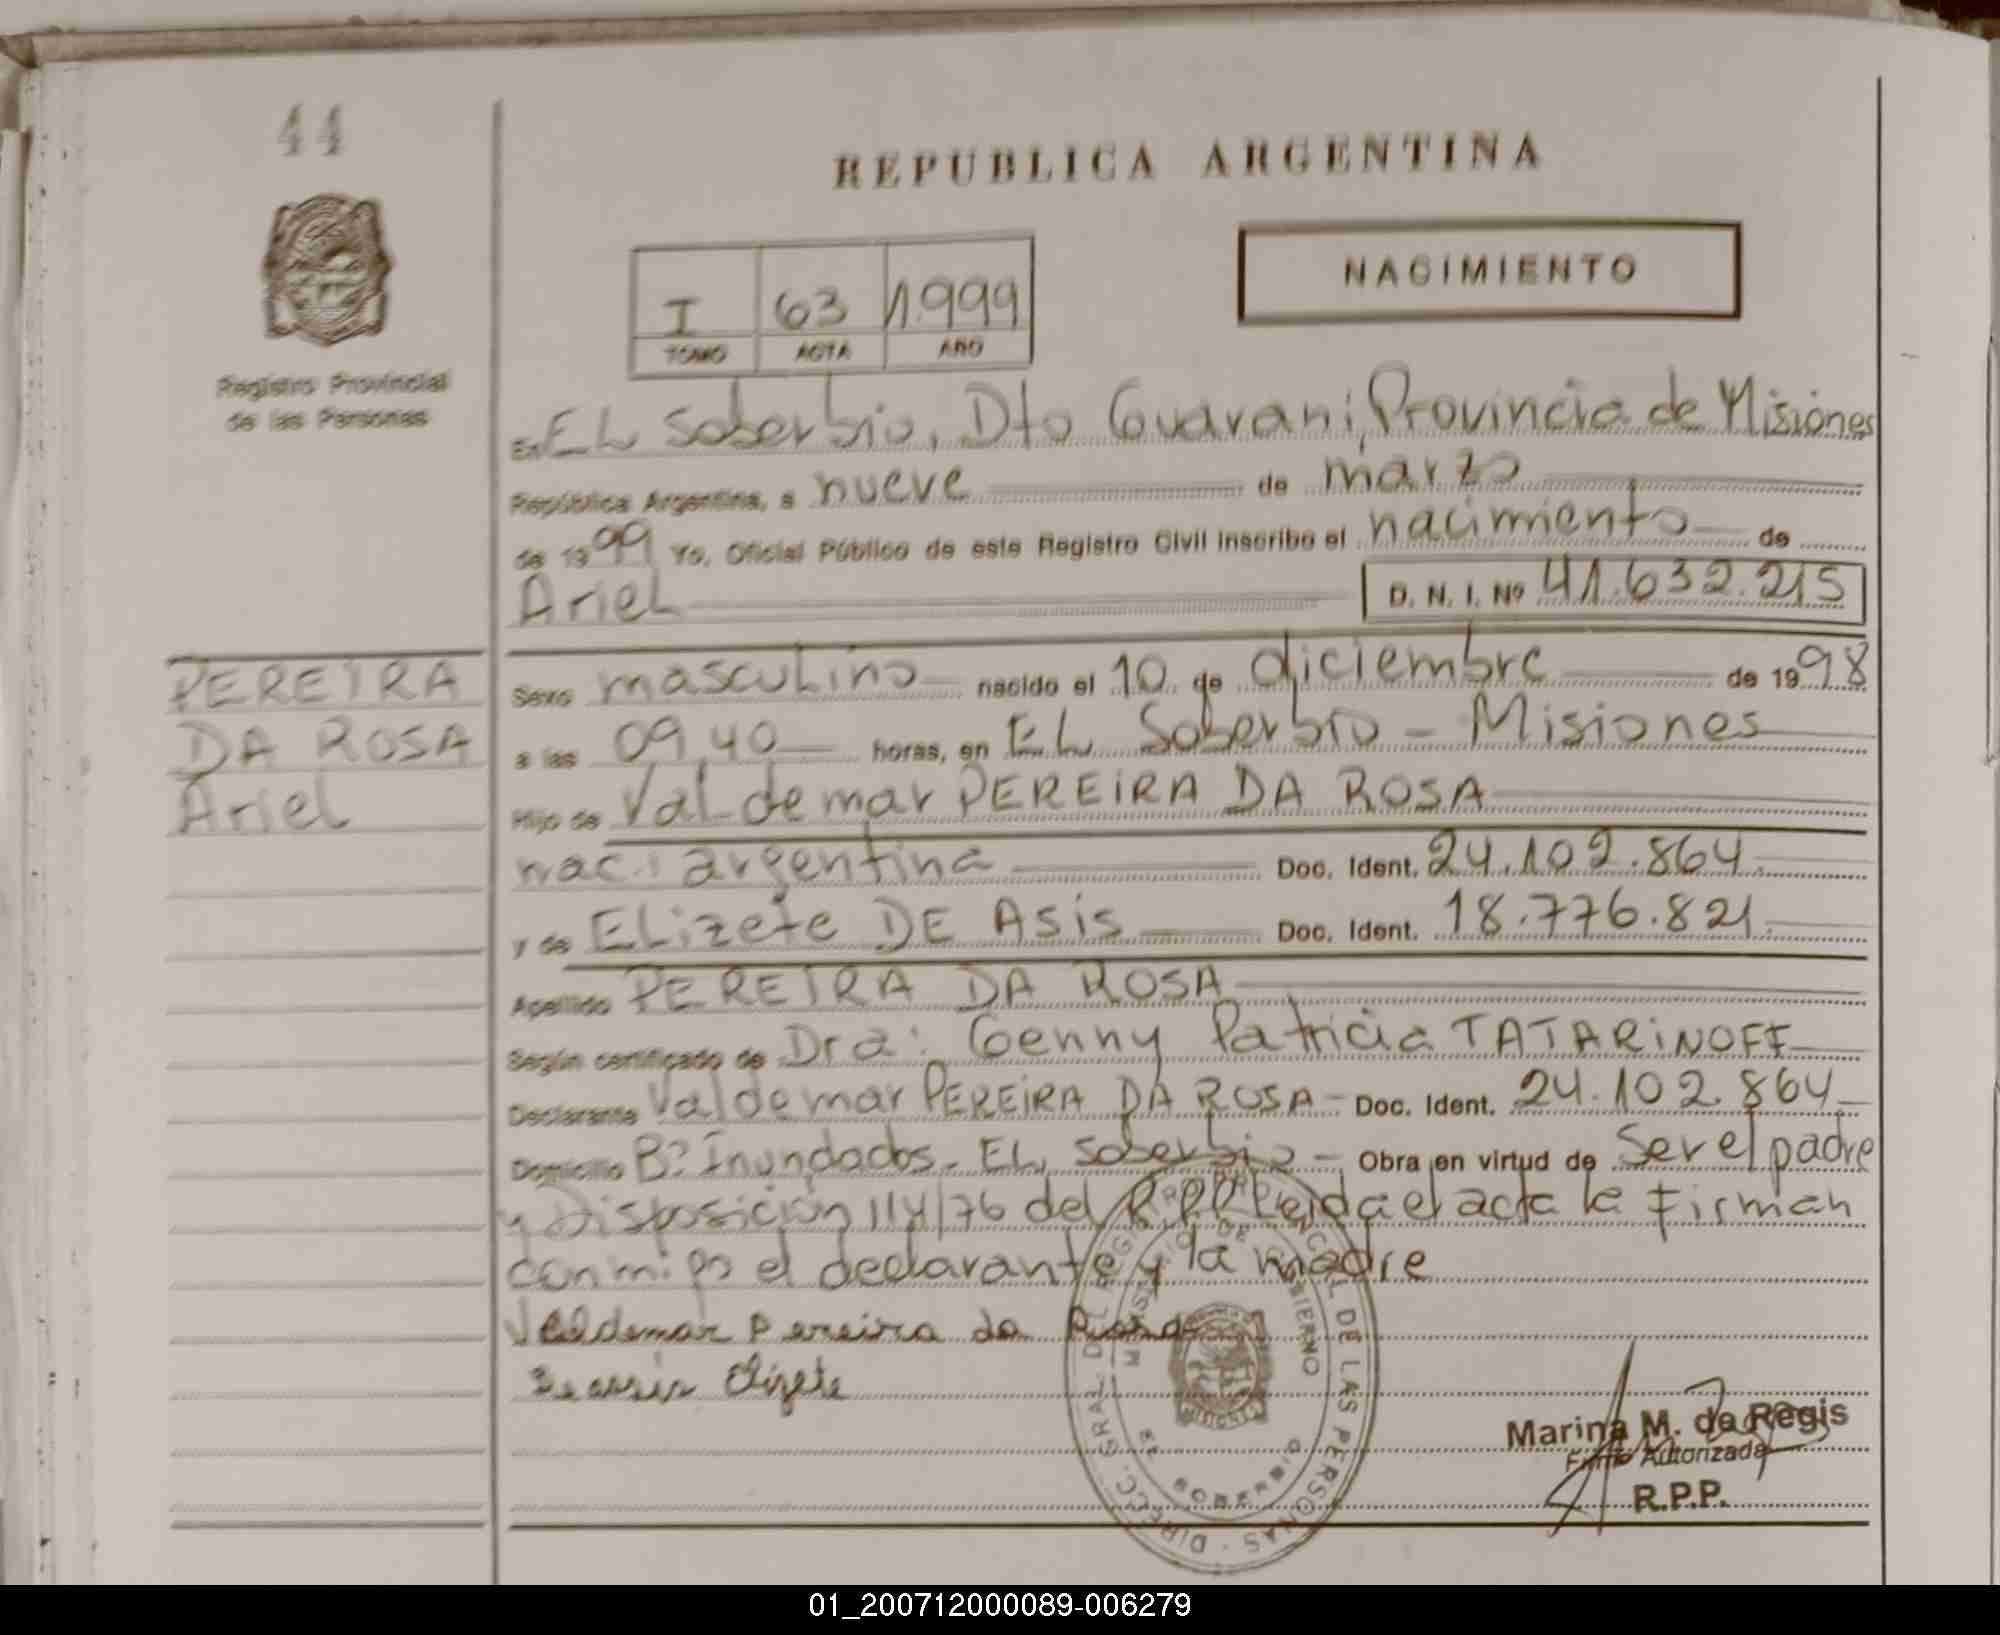 44
REPUBLICA ARGENTINA
NACIMIENTO
I 63 1.999
TOMO ACTA AÑO
Registro Provincial
de las Personas
En EL Soberbio, Dto Guarani, Provincia de Misiones
República Argentina, a nueve de marzo
de 1999 Yo, Oficial Público de este Registro Civil inscribo el nacimiento de
Ariel D. N. I. Nº 41.632.215
PEREIRA
DA ROSA
Ariel
Sexo masculino nacido el 10 de diciembre de 1998
a las 09,40 horas, en EL Soberbio - Misiones
Hijo de Valdemar PEREIRA DA ROSA
nac: argentina Doc. Ident. 24.102.864
y de ELizete DE ASis Doc. Ident. 18.776.821
Apellido PEREIRA DA ROSA
Según certificado de Dra: Genny Patricia TATARiNOFF
Declarante Valdemar PEREIRA DA ROSA - Doc. Ident. 24.102.864
Domicilio Bº Inundados - EL Soberbio - Obra en virtud de ser el padre
y Disposición 114/76 del R.P.P. Leida el acta la firman
conmigo el declarante y la madre
Valdemar Pereira da Rosa
De assis Elizete
DIRECC. GRAL. DEL REGISTRO PROVINCIAL DE LAS PERSONAS
MINISTERIO DE GOBIERNO
MISIONES
EL SOBERBIO
Marina M. de Regis
Firma Autorizada
R.P.P.
01_200712000089-006279